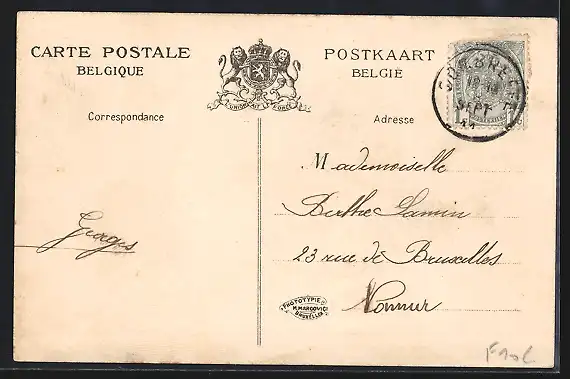 CARTE POSTALE
BELGIQUE
POSTKAART
BELGIË
L'UNION FAIT LA FORCE
Correspondance
Adresse
SEPT
11
1
Mademoiselle
Berthe Lamin
23 rue de Bruxelles
Namur
Georges
PHOTOTYPIE
M. MARCOVICI
BRUXELLES